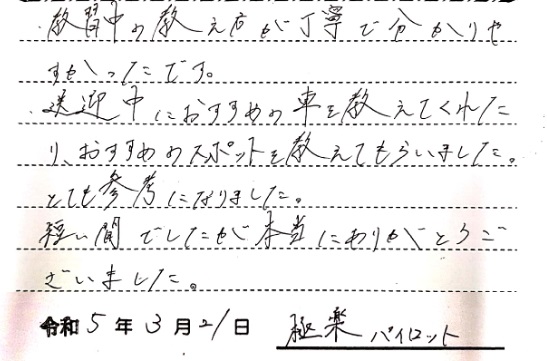 ・教習中の教え方が丁寧で分かりや
すかったです。
・送迎中におすすめの車を教えてくれた
り、おすすめのスポットを教えてもらいました。
とても参考になりました。
短い間でしたが本当にありがとうご
ざいました。
令和5年3月21日 極楽パイロット